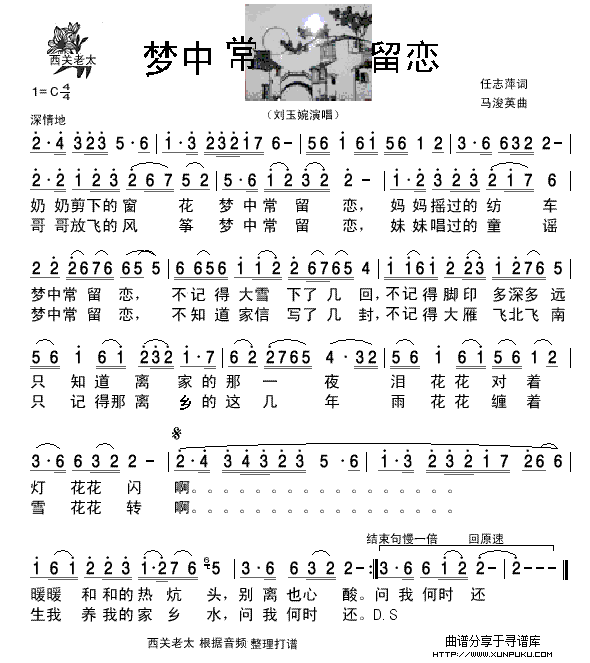 西关老太
梦中常留恋
1=C 4/4
任志萍词
马浚英曲
（刘玉婉演唱）
深情地
2·4 323 5·6 | 1·3 232176 6- | 56 161 56 12 | 3·6 632 2- |
2·2 123 267 52 | 5·6 1232 2- | 1·2 323 217 6 |
奶奶剪下的窗 花 梦中常留恋, 妈妈摇过的纺 车
哥哥放飞的风 筝 梦中常留恋, 妹妹唱过的童 谣
22 2676 655 | 6656 112 26765 4 | 1161 223 1276 5 |
梦中常留恋, 不记得大雪下了几回,不记得脚印多深多远
梦中常留恋, 不知道家信写了几封,不记得大雁飞北飞南
56 161 232 1·7 | 62 2765 4·32 | 56 161 5612 |
只知道离家的那一夜 泪花花对着
只记得那离乡的这几年 雨花花缠着
3·6 632 2- | 2·4 34323 5·6 | 1·3 232 17 266 |
灯花花闪 啊。。。。。。。。。。。。。。。。
雪花花转 啊。。。。。。。。。。。。。。。。
结束句慢一倍 回原速
161 223 1·276 5 | 3·6 63 2 2- :| 3·6 6162 2- | 2--- ||
暖暖和和的热炕头,别离也心酸。问我何时还
生我养我的家乡水,问我何时还。D.S
西关老太 根据音频 整理打谱
曲谱分享于寻谱库
HTTP://WWW.XUNPUKU.COM